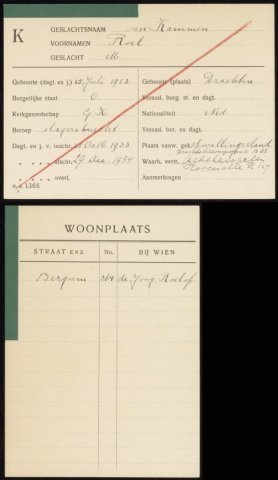 K
GESLACHTSNAAM v.d. Kammen
VOORNAMEN Roel
GESLACHT M
Geboorte (dagt en j.) 28 Juli 1913 Geboorte (plaats) Drachten
Burgerlijke staat O Verand. burg. st. en dagt.
Kerkgenootschap G.K. Nationaliteit Ned
Beroep slagersknecht Verand. her. en dagt.
Dagt. en j. v. insch. Oct. 1933 Plaats vanw. gek. Smallingerland
uitschr. 29 Dec 1934 Waarh. vertr. Achtkarspelen
overl. Aanmerkingen
H.N. 1365
WOONPLAATS
STRAAT ENZ. No. BIJ WIEN
Bergum 364 de Jong, Roelof